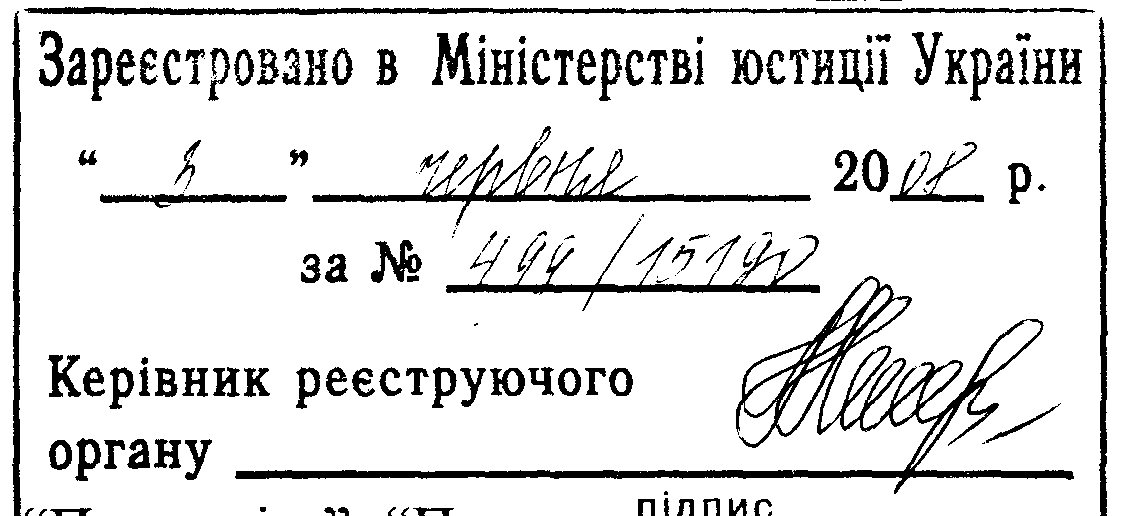 Зареєстровано в Міністерстві юстиції України
“ 3 ” червня 2008 р.
за № 499/15190
Керівник реєструючого
органу
підпис